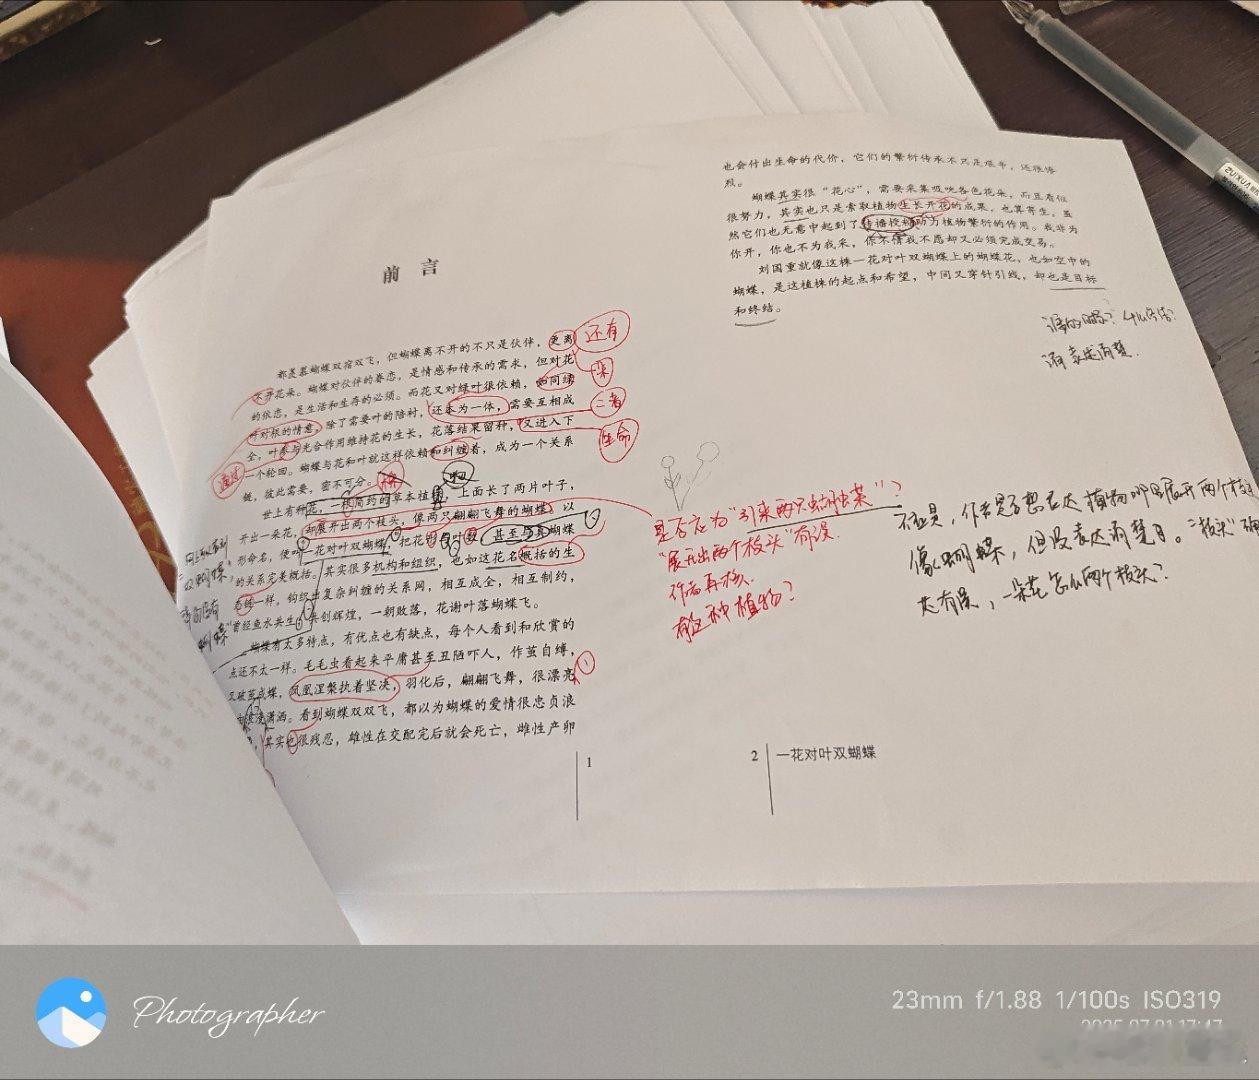 前 言
都羡慕蝴蝶双宿双飞，但蝴蝶离不开的不只是伙伴，更离
不开花朵。蝴蝶对伙伴的眷恋，是情感和传承的需求，但对花
的依恋，是生活和生存的必须。而花又对绿叶很依赖，如同绿
叶对根的情意，除了需要叶的陪衬，还本为一体，需要互相成
全，叶参与光合作用维持花的生长，花落结果留种，又进入下
一个轮回。蝴蝶与花和叶就这样依赖和纠缠着，成为一个关系
链，彼此需要，密不可分。
世上有种花，一根简约的草本植，上面长了两片叶子，
开出一朵花，却展开出两个枝头，像两只翩翩飞舞的蝴蝶，以
形命名，便叫一花对叶双蝴蝶，把花的与叶 甚至与真蝴蝶
的关系完美概括。其实很多机构和组织，也如这花名概括的生
态链一样，钩织出复杂纠缠的关系网，相互成全，相互制约，
曾经鱼水共生 共创辉煌，一朝败落，花谢叶落蝴蝶飞。
蝴蝶有太多特点，有优点也有缺点，每个人看到和欣赏的
点还不太一样。毛毛虫看起来平庸甚至丑陋吓人，作茧自缚，
又破茧成蝶，凤凰涅槃执着坚决，羽化后，翩翩飞舞，很漂亮
浪漫潇洒。看到蝴蝶双双飞，都以为蝴蝶的爱情很忠贞浪
其实也很残忍，雄性在交配完后就会死亡，雌性产卵
1
还有
深
二者
生命
通过
株
双蝴蝶
也会付出生命的代价，它们的繁衍传承不只是艰辛，还很惨
烈。
蝴蝶其实很“花心”，需要采集吸吮各色花朵，而且看似
很努力，其实也只是索取植物生长开花的成果，也算寄生，虽
然它们也无意中起到了传播授粉助力植物繁衍的作用。我非为
你开，你也不为我来，你不情我不愿却又必须完成交易。
刘国重就像这株一花对叶双蝴蝶上的蝴蝶花，也如空中的
蝴蝶，是这植株的起点和希望，中间又穿针引线，却也是目标
和终结。
请表述清楚.
是否应为“引来两只蝴蝶”？
“展开出两个枝头”有误.
作者再核.
有这种植物？
不应是，作者是想表达植物叶展开两个枝头
像蝴蝶，但没表达清楚。“枝头”确
实有误，一朵花怎么两个枝头？
2
一花对叶双蝴蝶
Photographer
23mm f/1.88 1/100s ISO319
2025.07.21 17:47